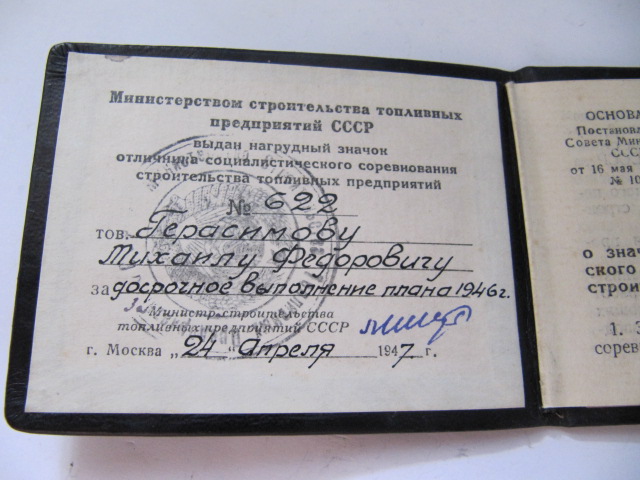 Министерством строительства топливных
предприятий СССР
выдан нагрудный значок
отличника социалистического соревнования
строительства топливных предприятий
№ 622
тов. Герасимову
Михаилу Федоровичу
за досрочное выполнение плана 1946 г.
Министр строительства
топливных предприятий СССР
г. Москва „24 “ Апреля 1947 г.
ОСНОВА
Постанов
Совета Мин
СССР
от 16 мая
№ 10
о знач
ского
строи
1. З
сорев